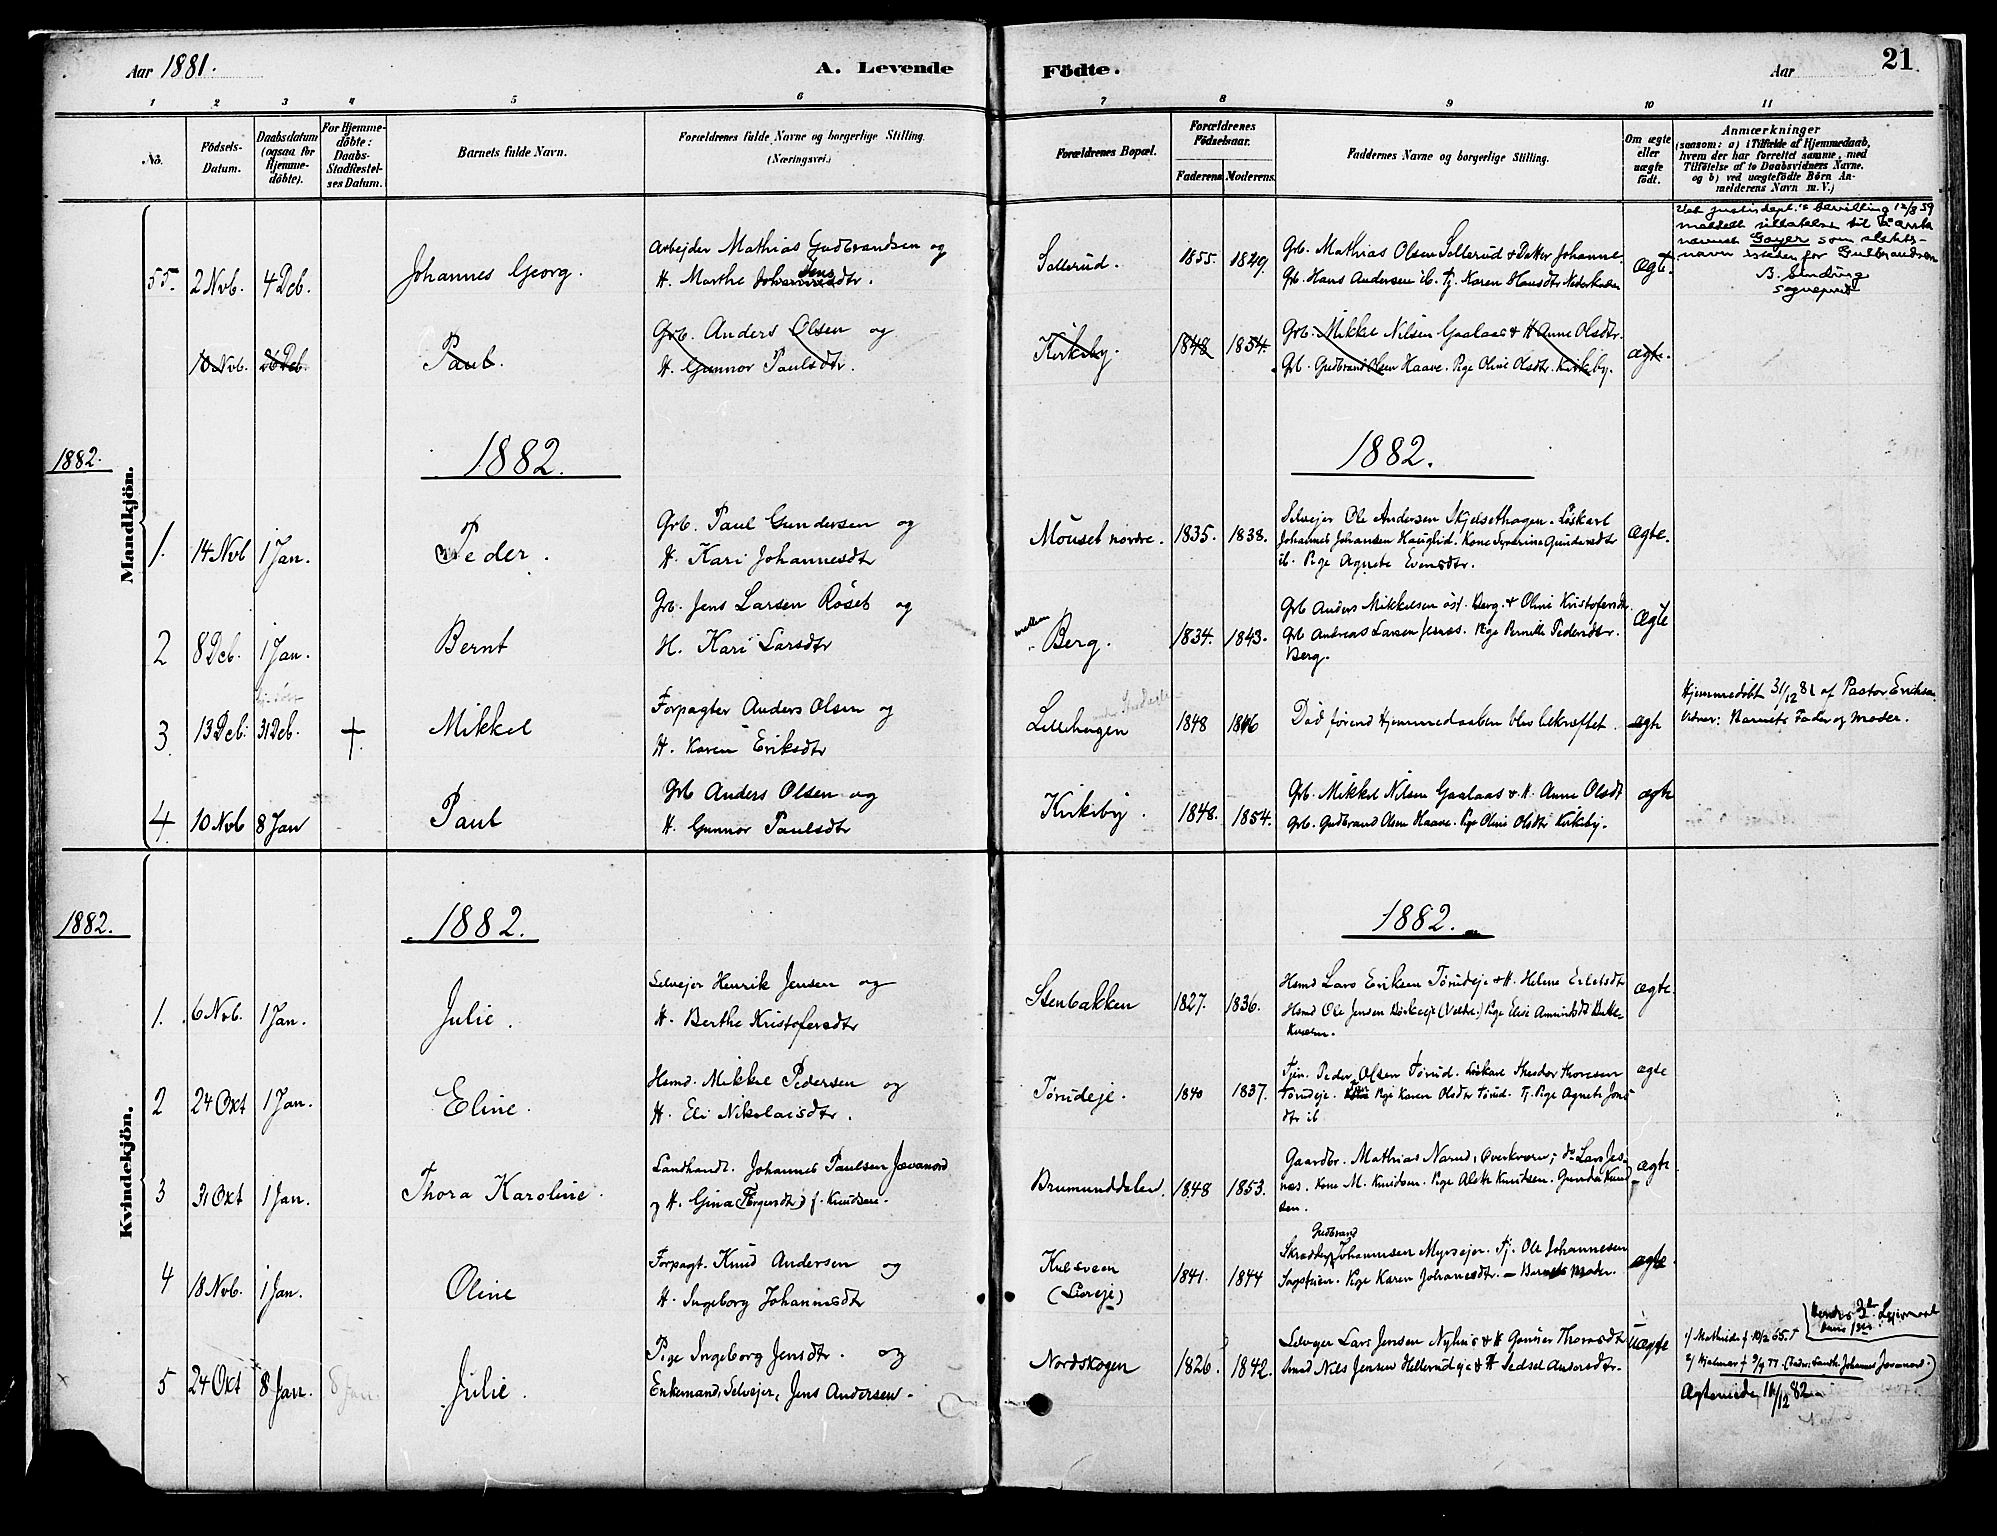 Aar 1881.
A. Levende Födte.
Aar
21
1 2 3 4 5 6 7 8 9 10 11
No.
Födsels-Datum.
Daabsdatum (ogsaa for Hjemme-döbte).
For Hjemme-döbte: Daabs-Stadfæstel-ses Datum.
Barnets fulde Navn.
Forældrenes fulde Navne og borgerlige Stilling. (Næringsvei.)
Forældrenes Bopæl.
Forældrenes Födselsaar.
Faderens Moderens.
Faddernes Navne og borgerlige Stilling.
Om ægte eller uægte födt.
Anmærkninger
(saasom: a) i Tilfælde af Hjemmedaab, hvem der har forrettet samme, med Tilföielse af to Daabsvidners Navne. og b) ved uægtefödte Börn An-melderens Navn m. V.)
Mandkjön.
55. 2 Nvb. 4 Dcb. Johannes Georg.
Arbejder Mathias Gudbrandsen og
H. Marthe Jensdtr.
Sollerud. 1855. 1849.
Grb. Mathias Olsen Sollerud & Datter Johanne.
Grb. Hans Andersen ib. Tj. Karen Hansdtr
ægt.
Ved justisdept.s bevilling 12/8 59
meddelt tillatelse til å anta
navnet Gayer som slekts-
navn istedenfor Gulbrandsen
sogneprest
10 Nvb. 26 Dcb. Paul.
Grb. Anders Olsen og
H. Gunnor Paulsdtr.
Kirkeby. 1848 1854.
Grb. Mikkel Nilsen Gaalaas & H Anne Olsdtr.
Grb. Gudbrand Olsen Haave. Pige Oline Olsdtr. Kirkeby.
ægte.
1882.
1882.
1882.
1. 14 Nvb 1 Jan. Peder.
Grb. Paul Gundersen og
H. Kari Johannesdtr
Mouset nordre. 1835. 1838.
Selvejer Ole Andersen Skjelsethagen. Löskarl
Johannes Johansen Hauglid. Kone Syverine Gundersdtr
ib. Pige Agnete Evensdtr.
ægte.
2 8 Dcb. 1 Jan. Bernt
Grb. Jens Larsen Röset og
H. Kari Larsdtr
mellem Berg. 1834. 1843.
Grb Anders Mikkelsen öst. Berg. & Oline Kristofersdtr
Grb Andreas Larsen Jesnes. Pige Pernille Pedersdtr.
Berg.
ægte
3. 13 Dcb. 31 Dcb. + Mikkel
Forpagter Anders Olsen og
H. Karen Eriksdtr
Lillehagen 1848 1846
Död förend Hjemmedaaben blev bekræftet.
ægte
Hjemmedöbt 31/12 81 af Pastor Eriksen
Vidner: Barnets Fader og Moder.
4. 10 Nvb 8 Jan Paul
Grb Anders Olsen og
H. Gunnor Paulsdtr
Kirkeby. 1848. 1854.
Grb. Mikkel Nilsen Gaalaas & H. Anne Olsdt
Grb. Gudbrand Olsen Haave. Pige Oline Olsdtr Kirkeby.
ægte
Kvindekjön.
1882.
1882.
1882.
1. 6 Nvb. 1 Jan. Julie.
Selvejer Henrik Jensen og
H. Berthe Kristofersdtr
Stenbakken 1827. 1836.
Hsmd Lars Eriksen Törudeje & H. Helene
Hsmd Ole Jensen (Veldre.) Pige Elise
ægte.
2 24 Okt 1 Jan. Eline.
Hsmd. Mikkel Pedersen og
H. Eli Nikolaisdtr.
Törudeje. 1840 1837.
Tjen. Peder Olsen Törud. Löskarl Theodor Thoresen
Törudeje. Pige Karen Olsdtr Törud. Tj. Pige Agnete Jens-
dtr ib
ægte
3 31 Okt 1 Jan. Thora Karoline.
Landhandl. Johannes Paulsen Jevanord
og H. Gina f. Knudsen.
Brumunddalen. 1848 1853.
Gaardbr. Mathias Narud, Overkværn, do Lars Jes-
næs. Kone M. Knudsen. Pige Knudsen. Gunda Knud-
sen.
ægte
4 18 Nvb. 1 Jan. Oline
Forpagt. Knud Andersen og
H. Ingeborg Johannesdtr
Kulsveen 1841. 1844
(Liereje)
Skrædder Gudbrand Johannesen Myrsejer. Tj. Ole Johannesen
Pige Karen Johannesdtr. — Barnets Moder.
ægte
5 24 Okt 8 Jan. 8 Jan. Julie.
Pige Ingeborg Jensdtr. og
Enkemand, Selvejer, Jens Andersen.
Nordskogen 1826. 1842.
Selvejer Lars Jensen Nyhus & H Gunnor Thorsdtr
Smed Nils Jensen Hellerudeje & H Sedsel Andersdtr.
uægte
Hendes 3die Lejermaal
1/ Mathilde f. 10/2 65. †
2/ Hjalmar f 9/9 77. (Fader: Landh. Johannes Jevanord.)
Ægteviede 16/12 82